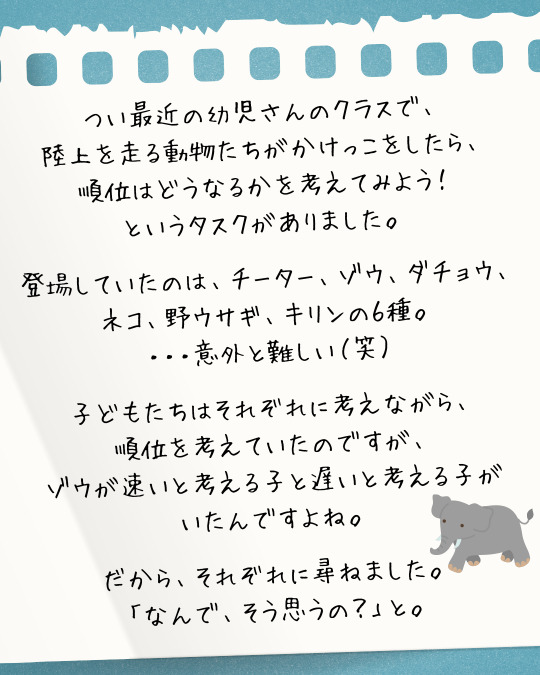 つい最近の幼児さんのクラスで、
陸上を走る動物たちがかけっこをしたら、
順位はどうなるかを考えてみよう!
というタスクがありました。
登場していたのは、チーター、ゾウ、ダチョウ、
ネコ、野ウサギ、キリンの6種。
・・・意外と難しい(笑)
子どもたちはそれぞれに考えながら、
順位を考えていたのですが、
ゾウが速いと考える子と遅いと考える子が
いたんですよね。
だから、それぞれに尋ねました。
「なんで、そう思うの?」と。